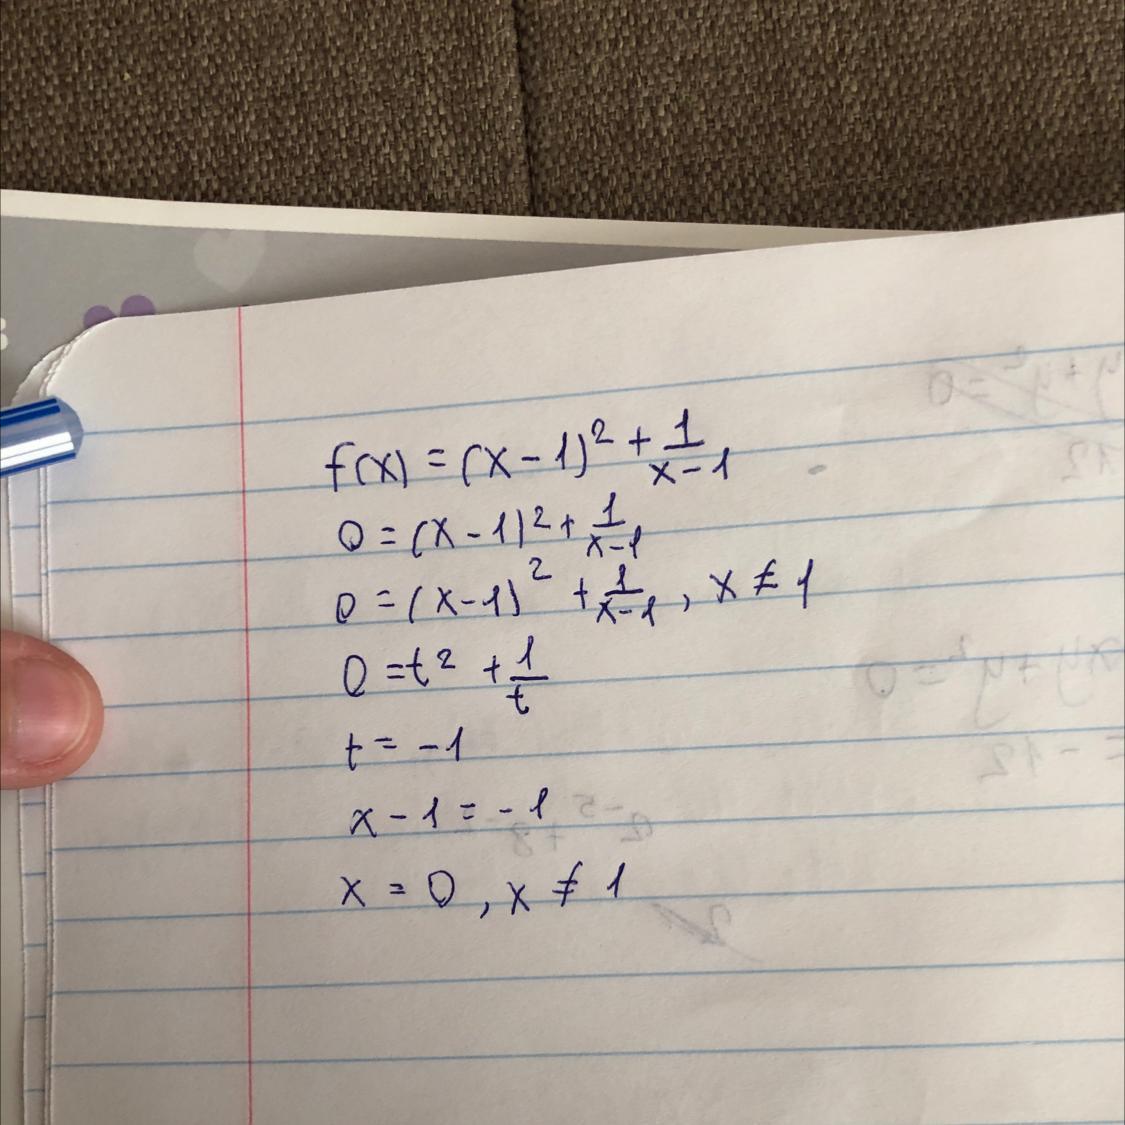 f(x) = (x - 1)² + 1/(x - 1)
0 = (x - 1)² + 1/(x - 1)
0 = (x - 1)² + 1/(x - 1), x ≠ 1
0 = t² + 1/t
t = -1
x - 1 = -1
x = 0, x ≠ 1